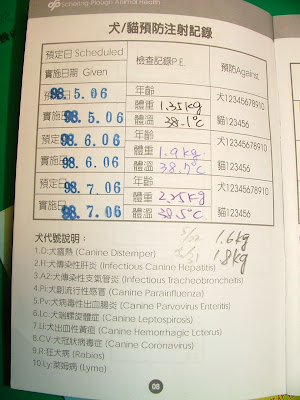 Schering-Plough Animal Health
犬/貓預防注射記錄
預定日 Scheduled
實施日期 Given
檢查記錄P.E.
預防Against
預定日 98.5.06
實施日 98.5.06
年齡
體重 1.35kg
體溫 38.1°C
犬12345678910
貓123456
預定 98.6.06
實施 98.6.06
年齡
體重 1.9kg
體溫 38.7°C
犬12345678910
貓123456
預定日 98.7.06
實施日 98.7.06
年齡
體重 2.25kg
體溫 38.5°C
犬12345678910
貓123456
犬代號說明：
1.6kg
1.8kg
1.D:犬瘟熱 (Canine Distemper)
2.H:犬傳染性肝炎 (Infectious Canine Hepatitis)
3.A2:犬傳染性支氣管炎 (Infectious Tracheobronchitis)
4.Pi:犬副流行性感冒 (Canine Parainfluenza)
5.Pv:犬病毒性出血腸炎 (Canine Parvovirus Enteritis)
6.Lc:犬鉤端螺旋體症 (Canine Leptospirosis)
7.Li:犬出血性黃疸 (Canine Hemorrhagic Lcterus)
8.CV:犬冠狀病毒症 (Canine Coronavirus)
9.R:狂犬病 (Rabies)
10.Ly:萊姆病 (Lyme)
08